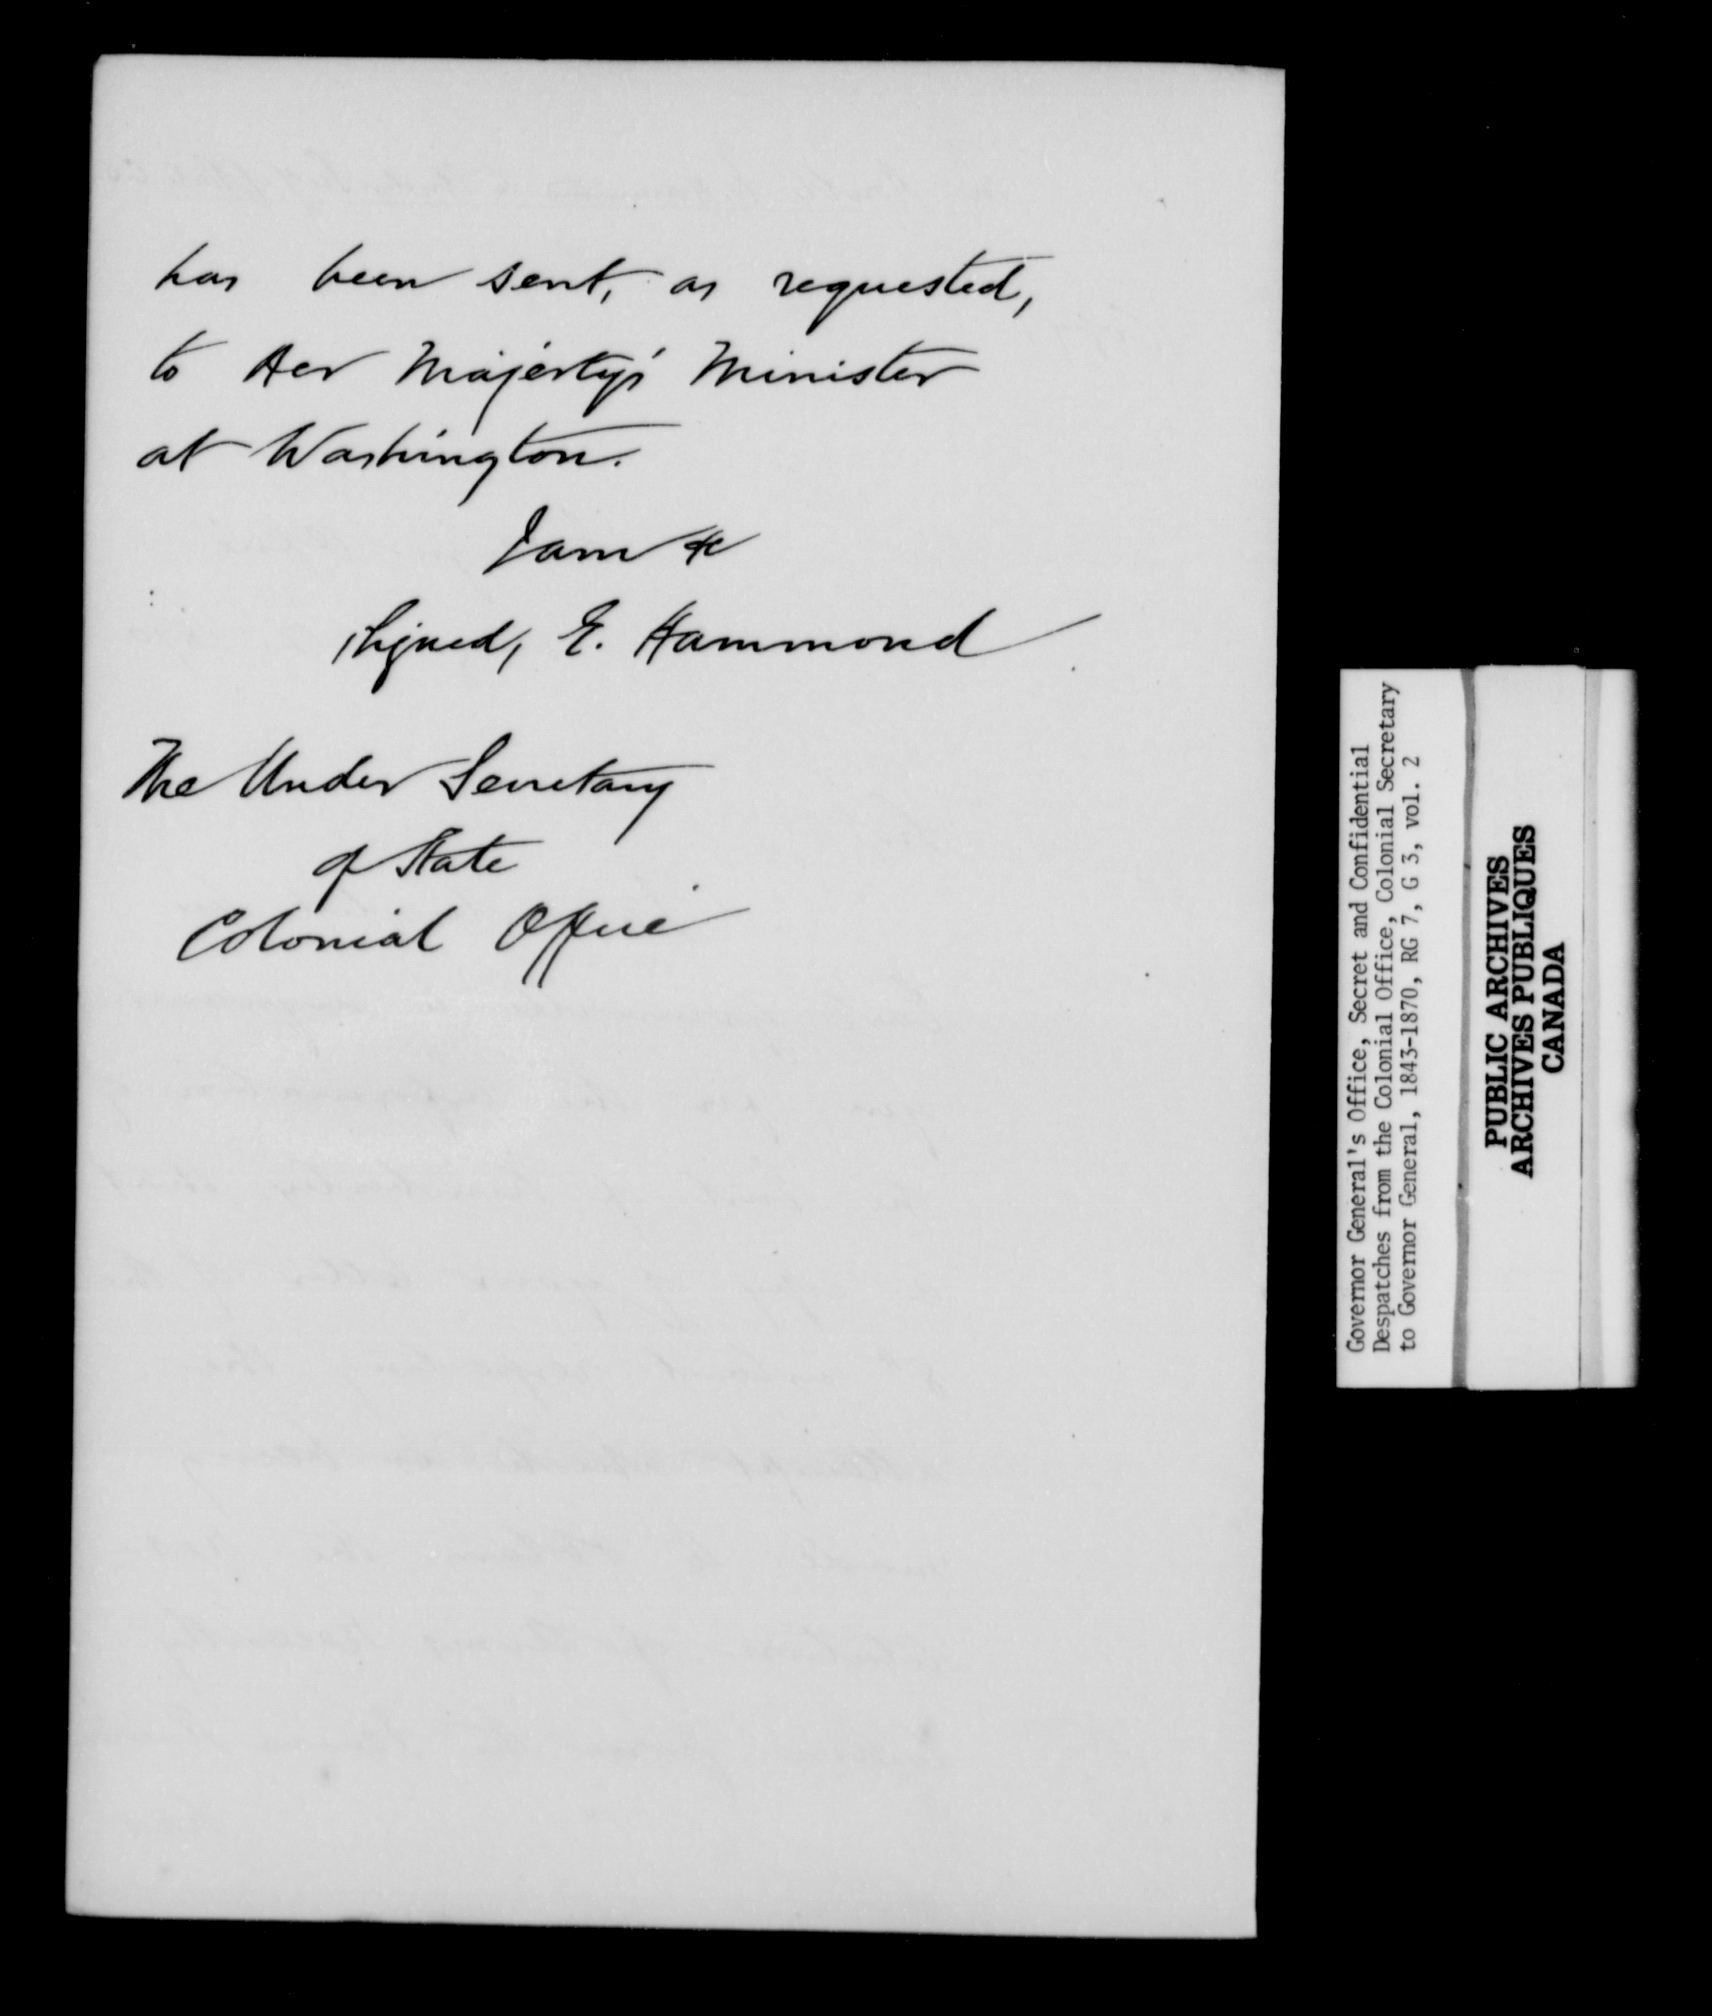 has been sent, as requested,
to Her Majesty's Minister
at Washington.
I am &c
signed, E. Hammond
The Under Secretary
of State
Colonial Office
Governor General's Office, Secret and Confidential
Despatches from the Colonial Office, Colonial Secretary
to Governor General, 1843-1870, RG 7, G 3, vol. 2
PUBLIC ARCHIVES
ARCHIVES PUBLIQUES
CANADA